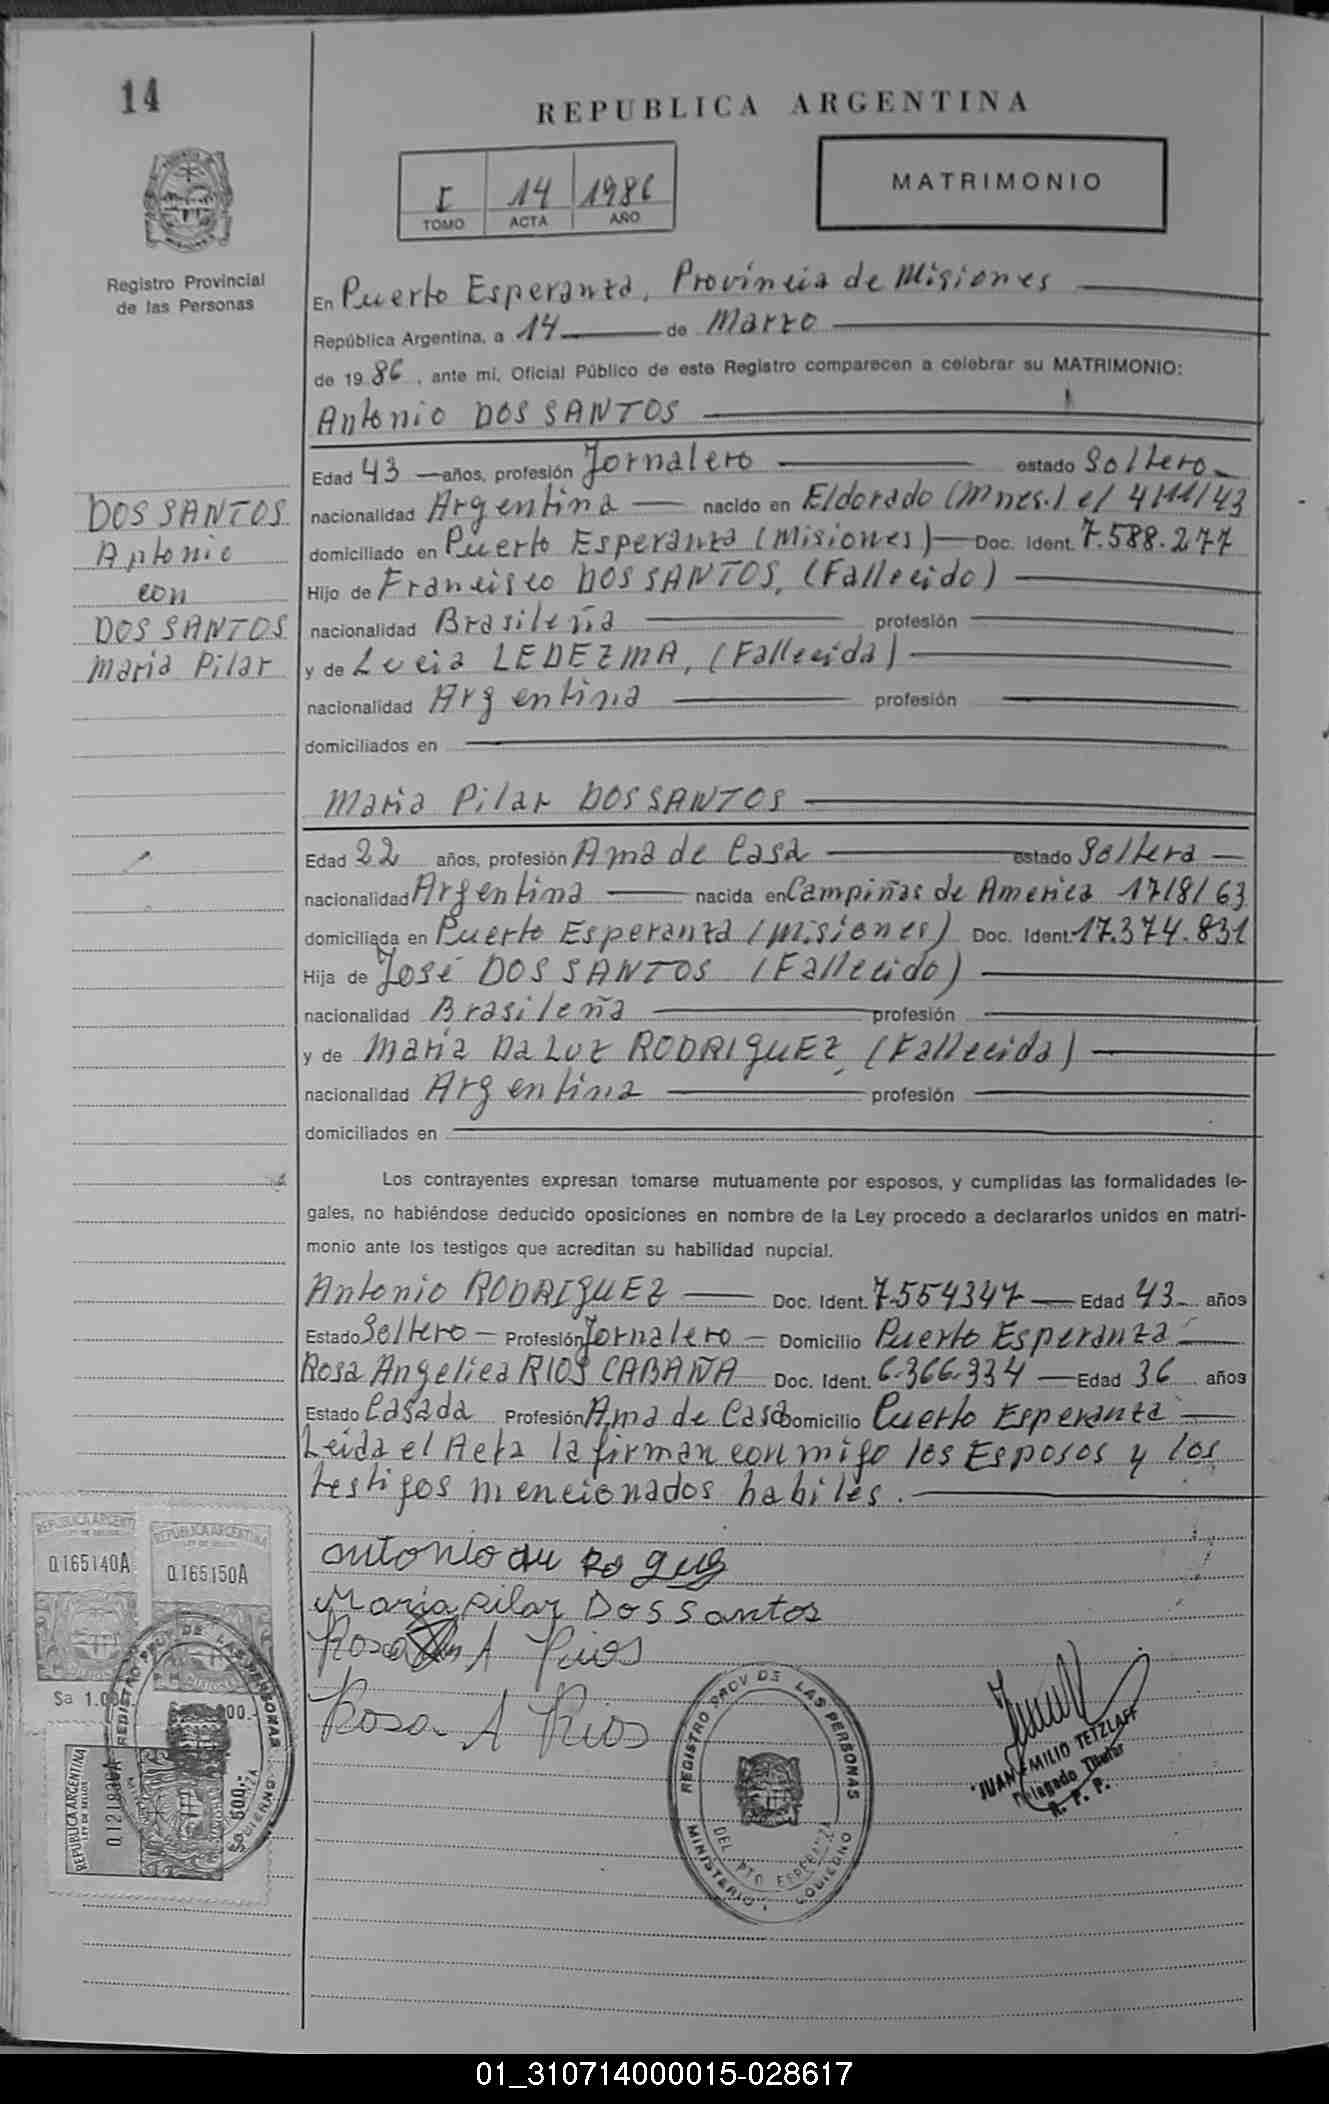 14
REPUBLICA ARGENTINA
I 14 1986
TOMO ACTA AÑO
MATRIMONIO
Registro Provincial
de las Personas
En Puerto Esperanza, Provincia de Misiones
República Argentina, a 14 de Marzo
de 19 86, ante mi, Oficial Público de este Registro comparecen a celebrar su MATRIMONIO:
Antonio DOS SANTOS
Edad 43 años, profesión Jornalero estado Soltero
nacionalidad Argentina nacido en Eldorado (Mnes.) el 4/11/43
domiciliado en Puerto Esperanza (Misiones) Doc. Ident. 7.588.277
Hijo de Francisco DOS SANTOS, (Fallecido)
nacionalidad Brasileña profesión
y de Lucia LEDEZMA, (Fallecida)
nacionalidad Argentina profesión
domiciliados en
DOS SANTOS
Antonio
con
DOS SANTOS
Maria Pilar
Maria Pilar DOS SANTOS
Edad 22 años, profesión Ama de Casa estado Soltera
nacionalidad Argentina nacida en Campiñas de America 17/8/63
domiciliada en Puerto Esperanza (Misiones) Doc. Ident. 17.374.831
Hija de José DOS SANTOS (Fallecido)
nacionalidad Brasileña profesión
y de Maria Da Luz RODRIGUEZ, (Fallecida)
nacionalidad Argentina profesión
domiciliados en
Los contrayentes expresan tomarse mutuamente por esposos, y cumplidas las formalidades le-
gales, no habiéndose deducido oposiciones en nombre de la Ley procedo a declararlos unidos en matri-
monio ante los testigos que acreditan su habilidad nupcial.
Antonio RODRIGUEZ Doc. Ident. 7.554347 Edad 43 años
Estado Soltero Profesión Jornalero Domicilio Puerto Esperanza
Rosa Angelica RIOS CABAÑA Doc. Ident. 6.366.334 Edad 36 años
Estado Casada Profesión Ama de Casa Domicilio Puerto Esperanza
Leida el Acta la firman con migo los Esposos y los
testigos mencionados habiles.
antonio
Maria Pilar Dos Santos
Rosa A Rios
Rosa A Rios
REPUBLICA ARGENTINA
LEY DE SELLOS
0.165140A
REPUBLICA ARGENTINA
LEY DE SELLOS
0.165150A
REPUBLICA ARGENTINA
LEY DE SELLOS
$a 500.-
REGISTRO PROV. DE LAS PERSONAS
REGISTRO PROV DE LAS PERSONAS
DEL. PTO ESPERANZA
MINISTERIO GOBIERNO
JUAN EMILIO TETZLAFF
Delegado Titular
R. P. P.
01_310714000015-028617